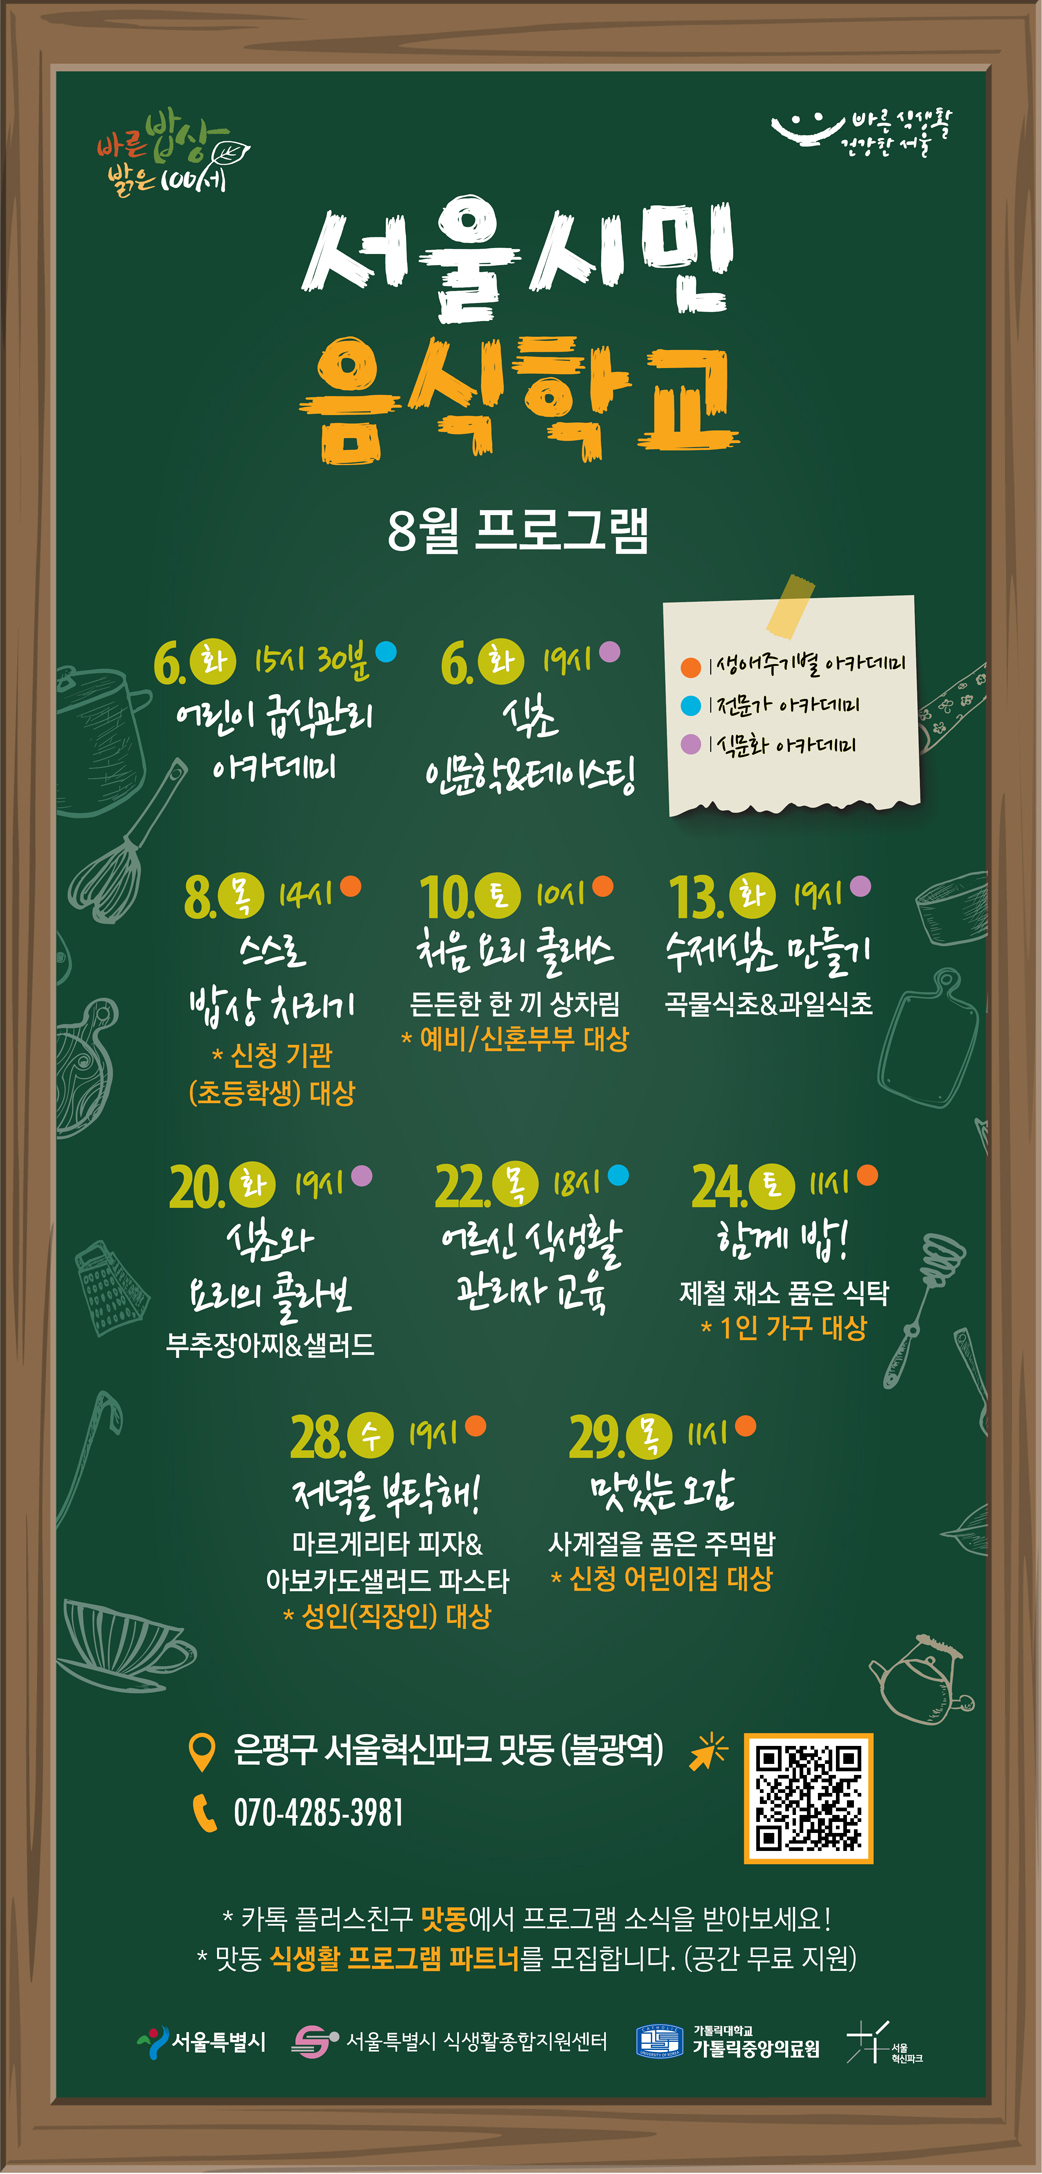 바른 밥상
밝은 100세
바른 식생활
건강한 서울
서울시민
음식학교
8월 프로그램
6. 화 15시 30분
어린이 급식관리
아카데미
6. 화 19시
식초
인문학&테이스팅
생애주기별 아카데미
전문가 아카데미
식문화 아카데미
8. 목 14시
스스로
밥상 차리기
* 신청 기관
(초등학생) 대상
10. 토 10시
처음 요리 클래스
든든한 한 끼 상차림
* 예비/신혼부부 대상
13. 화 19시
수제식초 만들기
곡물식초&과일식초
20. 화 19시
식초와
요리의 콜라보
부추장아찌&샐러드
22. 목 18시
어르신 식생활
관리자 교육
24. 토 11시
함께 밥!
제철 채소 품은 식탁
* 1인 가구 대상
28. 수 19시
저녁을 부탁해!
마르게리타 피자&
아보카도샐러드 파스타
* 성인(직장인) 대상
29. 목 11시
맛있는 오감
사계절을 품은 주먹밥
* 신청 어린이집 대상
은평구 서울혁신파크 맛동 (불광역)
070-4285-3981
* 카톡 플러스친구 맛동에서 프로그램 소식을 받아보세요!
* 맛동 식생활 프로그램 파트너를 모집합니다. (공간 무료 지원)
서울특별시
서울특별시 식생활종합지원센터
가톨릭대학교
가톨릭중앙의료원
서울
혁신파크